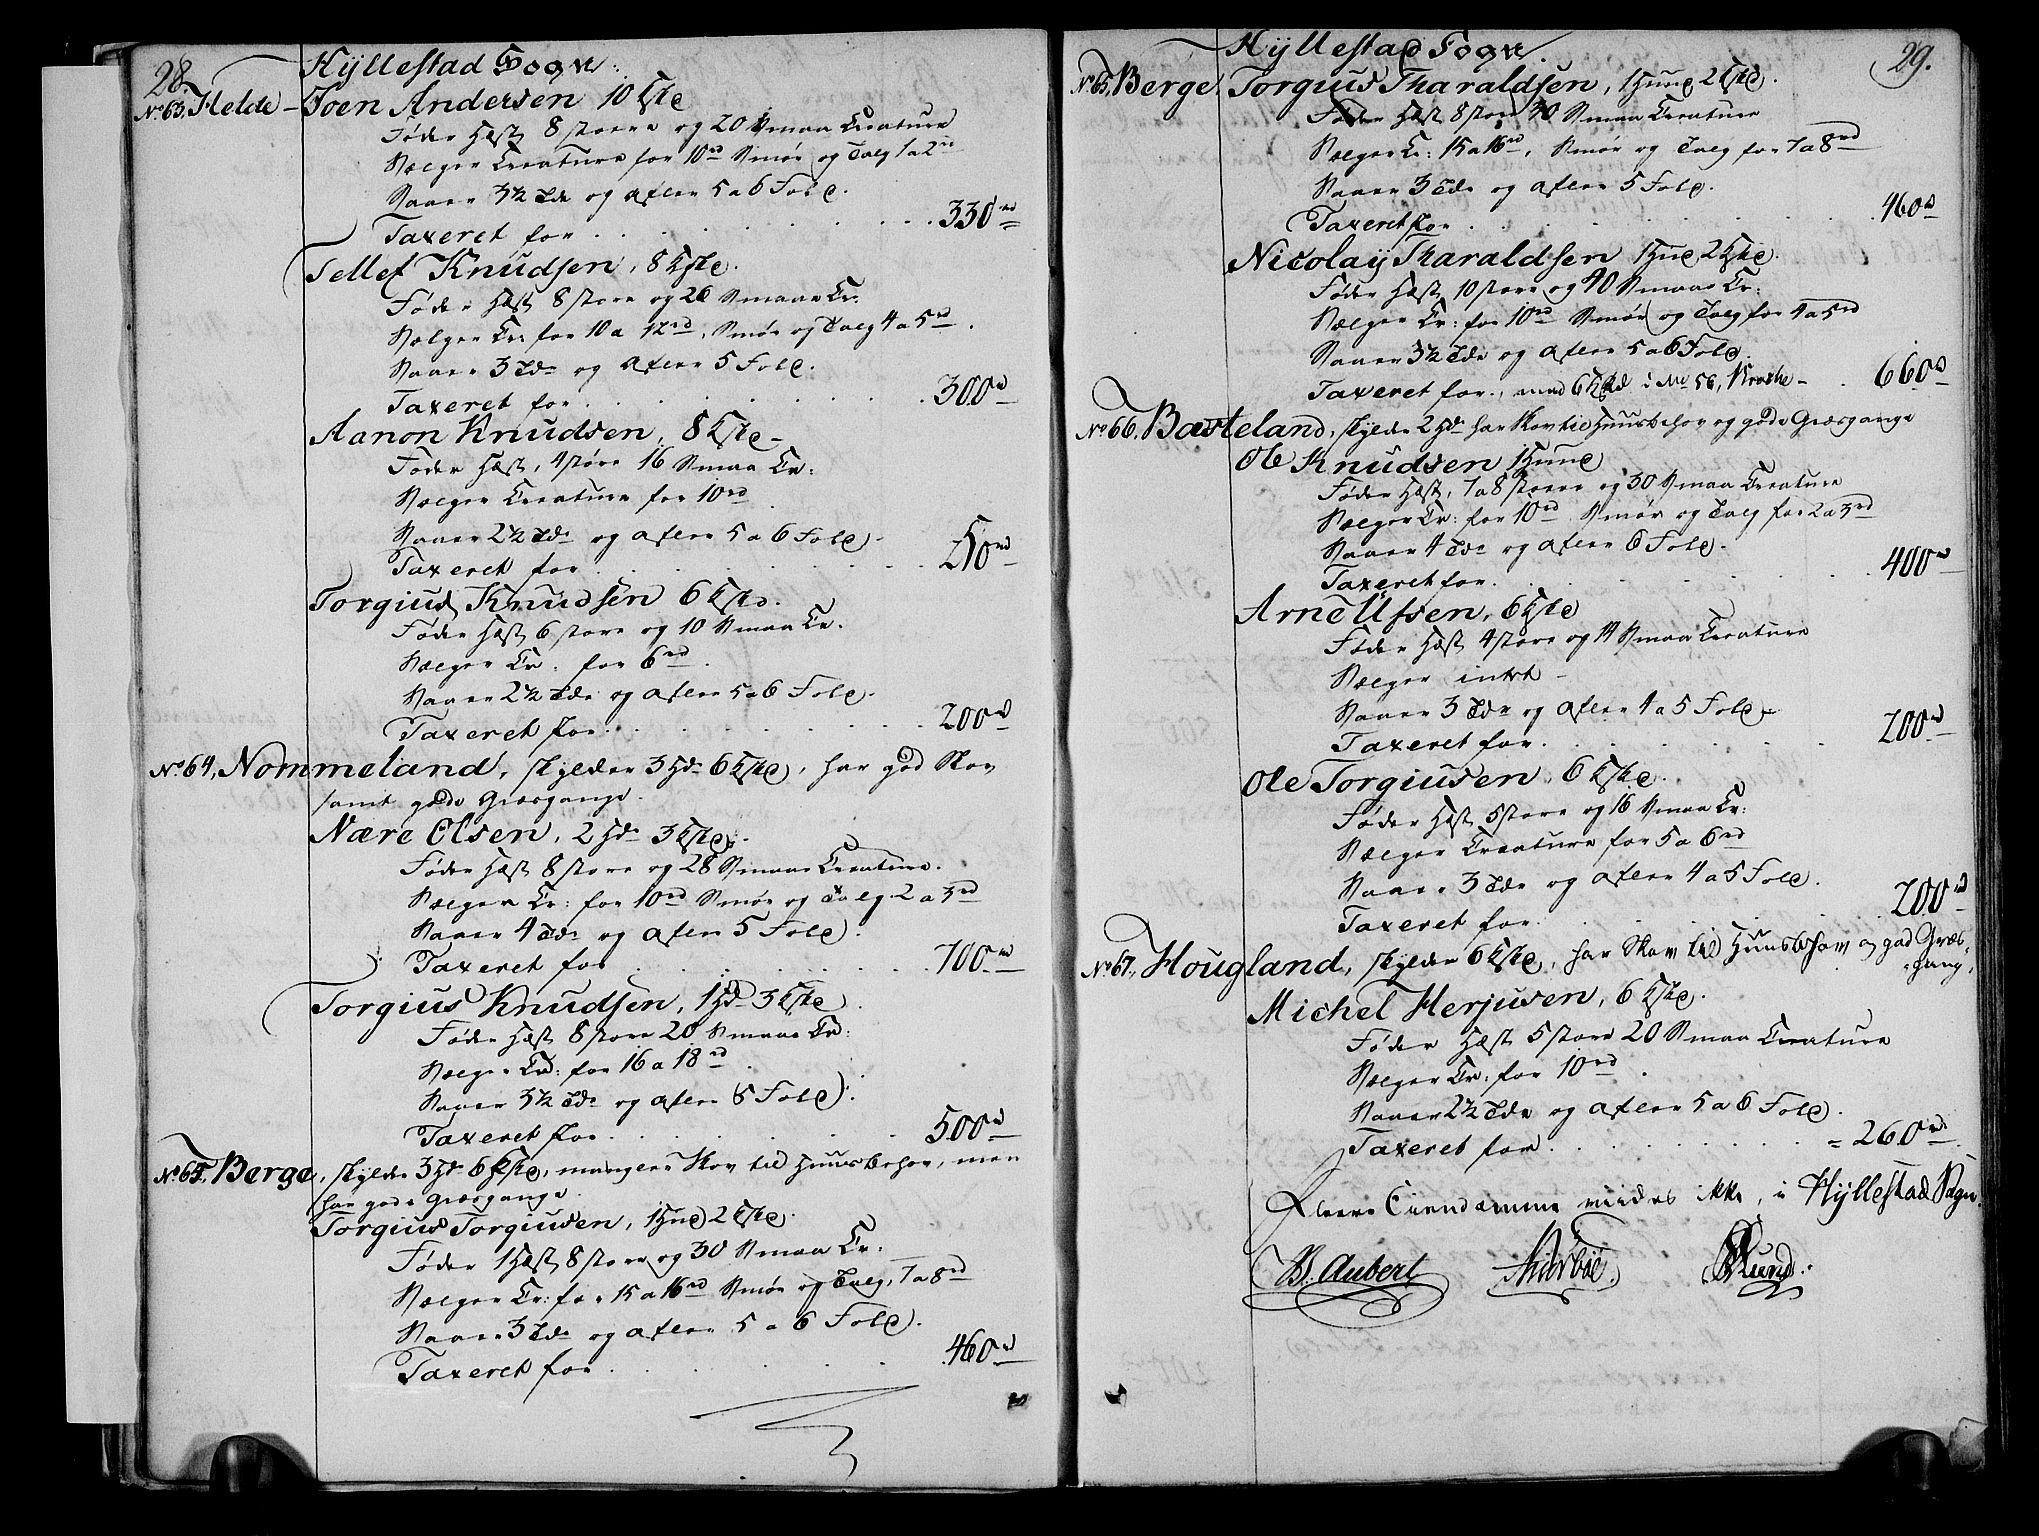 28.
Hyllestad Sogn.
No 63. Helde – Joen Andersen 10 Kalve
Føder Hæst 8 store og 20 Smaa Creature
Sælger Creature for 10 rd Smør og Talg 1 a 2 rd
Saaer 3½ Tde og afler 5 a 6 Fold.
Taxeret for . . . 330 rd
Tellef Knudsen, 8 Kalve.
Føder Hæst 8 store og 26 Smaae Cr:
Sælger Cr: for 10 a 12 rd, Smør og Talg 4 a 5 rd.
Saaer 3 Tde og afler 5 Fold.
Taxeret for . . . 300 rd
Aanon Knudsen, 8 Kalve –
Føder Hæst, 4 store 16 Smaa Cr:
Sælger Creature for 10 rd
Saaer 2½ Tde og afler 5 a 6 Fold.
Taxeret for . . . 250 rd
Torgius Knudsen 6 Kalve.
Føder Hæst 6 store og 10 Smaa Cr.
Sælger Cr: for 6 rd.
Saaer 2½ Tde og afler 5 a 6 Fold.
Taxeret for . . . 200 rd
No 64, Nommeland, skylder 3 Hd 6 Kalve, har god Skov
samt gode Græsgange.
Nære Olsen, 2 Hd 3 Kalve.
Føder Hæst 8 store og 28 Smaae Creature.
Sælger Cr: for 10 rd Smør og Talg 2 a 3 rd
Saaer 4 Tde og afler 5 Fold.
Taxeret for . . . 700 rd
Torgius Knudsen, 1 Hd 3 Kalve
Føder Hæst 8 store 20 Smaae Cr:
Sælger Cr: for 16 a 18 rd
Saaer 3½ Tde og afler 5 Fold.
Taxeret for . . . 500 rd
No 65, Berge, skylder 3 Hd 6 Kalve, mangler Skov til Huusbehov, men
har gode Græsgange.
Torgius Torgiusen, 1 Hud 2 Kalve.
Føder 1 Hæst 8 store og 30 Smaa Cr.
Sælger Cr: for 15 a 16 rd Smør og Talg, 7 a 8 rd
Saaer 3 Tde og afler 5 a 6 Fold.
Taxeret for . . . 460 rd
29.
Hyllestad Sogn.
No 65, Berge, Torgius Tharaldsen, 1 Hud 2 Kalve.
Føder Hæst 8 store 30 Smaa Creature
Sælger Cr: 15 a 16 rd, Smør og Talg for 7 a 8 rd
Saaer 3 Tde og afler 5 Fold.
Taxeret for . . . 460 rd
Nicolay Tharaldsen 1 Hud 2 Kalve.
Føder Hæst 10 store og 40 Smaae Cr:
Sælger Cr: for 10 rd Smør og Talg for 4 a 5 rd
Saaer 3½ Tde og afler 5 a 6 Fold.
Taxeret for, med 6 Kalve i No 56, – 660 rd
No 66. Bæteland, skylder 2 Hd har Skov til Huusbehov og gode Græsgange
Ole Knudsen 1 Hud
Føder Hæst, 7 a 8 store og 30 Smaa Creature
Sælger Cr: for 10 rd Smør og Talg for 2 a 3 rd
Saaer 4 Tde og afler 6 Fold.
Taxeret for . . . 400 rd
Arne Ulfsen, 6 Kalve
Føder Hæst 4 store og 14 Smaa Creature
Sælger intet –
Saaer 3 Tde og afler 4 a 5 Fold.
Taxeret for . . . 200 rd
Ole Torgiusen, 6 Kalve.
Føder Hæst 5 store og 16 Smaa Cr:
Sælger Creature for 5 a 6 rd
Saaer 3 Tde og afler 4 a 5 Fold.
Taxeret for . . . 200 rd
No 67, Hougland, skylder 6 Kalve, har Skov til Huusbehov og god Græs-
gang,
Michel Herjusen, 6 Kalve.
Føder Hæst 5 store 20 Smaa Creature
Sælger Cr: for 10 rd.
Saaer 2½ Tde og afler 5 a 6 Fold.
Taxeret for . . . 260 rd
Fleere Eiendomme vides ikke, i Hyllestad Sogn.
B. Aubert Lund